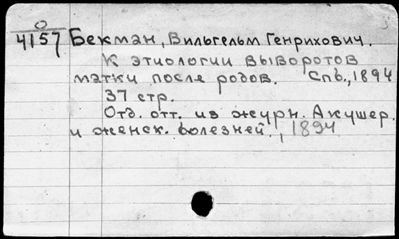 О
4157 Бекман, Вильгельм Генрихович.
К этиологии выворотов
матки после родов. Спб., 1894
37 стр.
Отд. отт. из журн. Акушер.
и женск. болезней., 1894